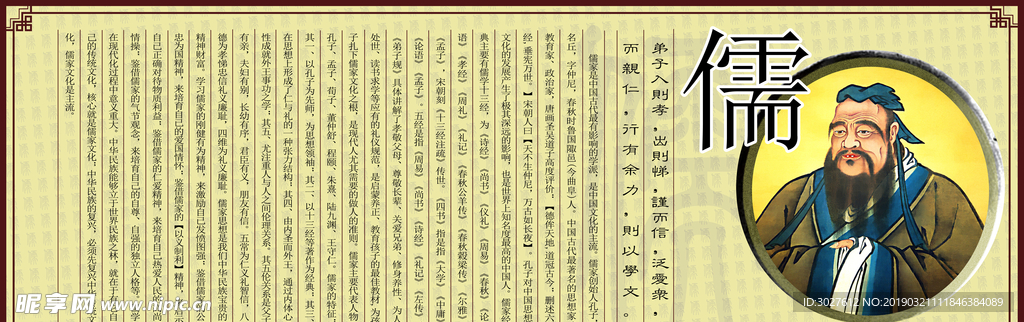 儒
弟子入則孝，出則悌，謹而信，泛愛衆，
而親仁，行有余力，則以學文。
儒家是中国古代最有影响的学派，是中国文化的主流，儒家创始人孔子，
名丘，字仲尼，春秋时鲁国陬邑（今曲阜）人，中国古代最著名的思想家
教育家、政治家，唐画圣吴道子高度评价：【德侔天地，道冠古今，删述六
经，垂宪万世。】宋朝人曰【天不生仲尼，万古如长夜】。孔子对中国思想
文化的发展产生了极其深远的影响，也是世界上知名度最高的中国人，儒家经
典主要有儒学十三经，为《诗经》《尚书》《仪礼》《周易》《春秋》《论
语》《孝经》《周礼》《礼记》《春秋公羊传》《春秋穀梁传》《尔雅》
《孟子》，宋朝刻《十三经注疏》传世。《四书》指是指《大学》《中庸》
《论语》《孟子》。五经是指《周易》《尚书》《诗经》《礼记》《左传》
《弟子规》具体讲解了孝敬父母，尊敬长辈、关爱兄弟，修身养性、为人
处世、读书求学等应有的礼仪规范，是启蒙养正、教育孩子的最佳教材，为孩
子扎下儒家文化之根，是现代人尤其需要的做人的准则。儒家主要代表人物
孔子、孟子、荀子、董仲舒、程颐、朱熹、陆九渊、王守仁，儒家的特征，
其一、以孔子为先师，为思想领袖；其二、以十三经等著作为经典；其三、
在思想上形成了仁与礼的一种张力结构；其四、由内圣而外王，通过内体心
性成就外王事功之学；其五、尤注重人与人之间伦理关系。其五伦关系是父子
有亲，夫妇有别，长幼有序，君臣有义，朋友有信。五常为仁义礼智信，八
德为孝悌忠信礼义廉耻，四维为礼义廉耻。儒家思想是我们中华民族宝贵的
精神财富，学习儒家的刚健有为精神，来激励自己发愤图强；鉴借儒家的公
忠为国精神，来培育自己的爱国情怀；鉴借儒家的【以义制利】精神，
自己正确对待物质利益；鉴借儒家的仁爱精神，来培育自己热爱人民的
情操；鉴借儒家的气节观念，来培育自己的自尊、自强的独立人格等
在现代化过程中意义重大。中华民族能够立于世界民族之林，就在于
己的传统文化，核心就是儒家文化。中华民族的复兴，必须先复兴中华文
化，儒家文化是主流。
昵享网 www.nipic.cn
ID:3027612 NO:20190321111846384089